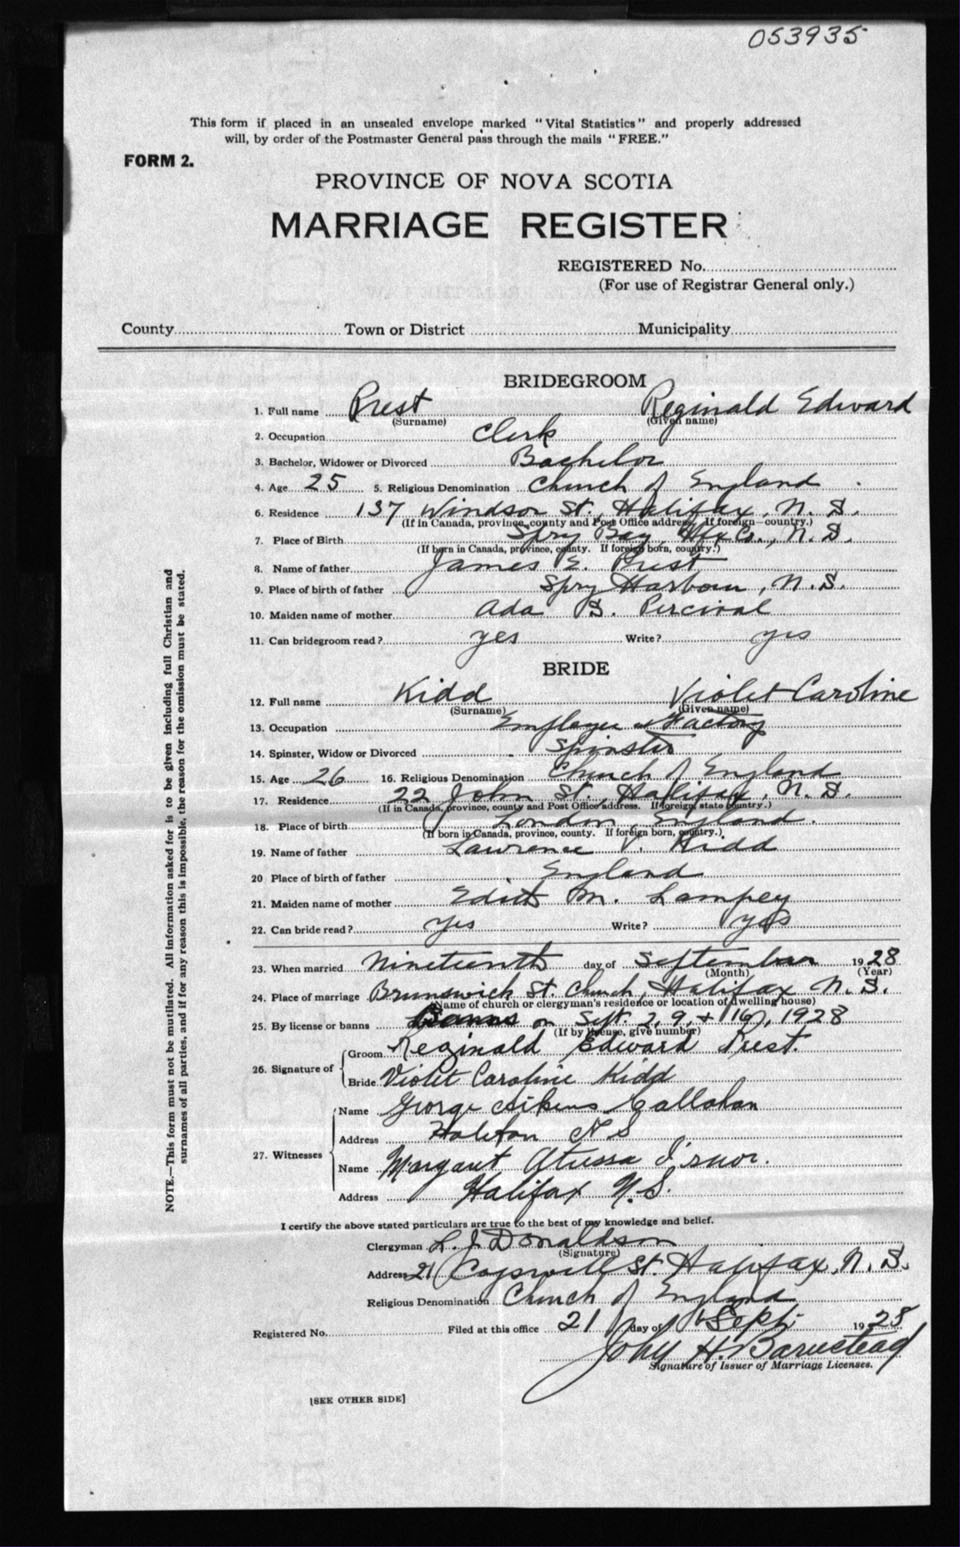 053935
This form if placed in an unsealed envelope marked "Vital Statistics" and properly addressed
will, by order of the Postmaster General pass through the mails "FREE."
FORM 2.
PROVINCE OF NOVA SCOTIA
MARRIAGE REGISTER
REGISTERED No.
(For use of Registrar General only.)
County Town or District Municipality
BRIDEGROOM
1. Full name Prest Reginald Edward
(Surname) (Given name)
2. Occupation Clerk
3. Bachelor, Widower or Divorced Bachelor
4. Age 25 5. Religious Denomination Church of England
6. Residence 137 Windsor St., Halifax, N. S.
(If in Canada, province, county and Post Office address. If foreign—country.)
7. Place of Birth Spry Bay, Hfx Co., N. S.
(If born in Canada, province, county. If foreign born, country.)
8. Name of father James E. Prest
9. Place of birth of father Spry Harbour, N.S.
10. Maiden name of mother Ada S. Percival
11. Can bridegroom read? yes Write? yes
BRIDE
12. Full name Kidd Violet Caroline
(Surname) (Given name)
13. Occupation Employee Factory
14. Spinster, Widow or Divorced Spinster
15. Age 26 16. Religious Denomination Church of England
17. Residence 22 John St., Halifax, N. S.
(If in Canada, province, county and Post Office address. If foreign state country.)
18. Place of birth London, England.
(If born in Canada, province, county. If foreign born, country.)
19. Name of father Lawrence V. Kidd
20 Place of birth of father England
21. Maiden name of mother Edith M. Lampey
22. Can bride read? yes Write? yes
23. When married Nineteenth day of September 1928
(Month) (Year)
24. Place of marriage Brunswick St. Church, Halifax N. S.
(Name of church or clergyman's residence or location of dwelling house)
25. By license or banns Banns on Sept. 2, 9, + 16, 1928
(If by license, give number)
26. Signature of Groom Reginald Edward Prest.
Bride Violet Caroline Kidd
27. Witnesses Name George Aikens Callahan
Address Halifax N S
Name Margaret Atressa
Address Halifax N. S.
I certify the above stated particulars are true to the best of my knowledge and belief.
Clergyman L. J. Donaldson
(Signature)
Address 21 Cogswell St. Halifax, N. S.
Religious Denomination Church of England
Registered No. Filed at this office 21 day of Sept. 1928
John H. Barnstead
Signature of Issuer of Marriage Licenses.
[SEE OTHER SIDE]
NOTE.—This form must not be mutilated. All information asked for is to be given including full Christian and
surnames of all parties, and if for any reason this is impossible, the reason for the omission must be stated.